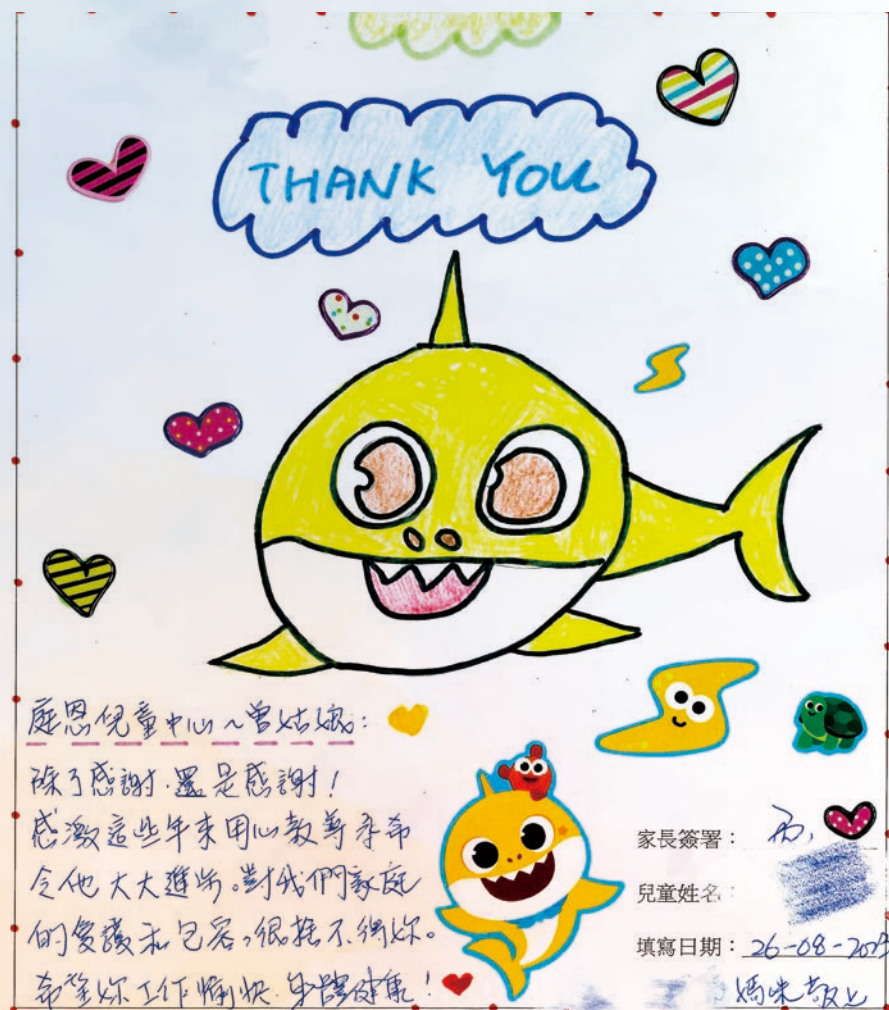 THANK YOU
庭恩兒童中心~曾姑娘:
除了感謝.還是感謝!
感激這些年來用心教導
令他大大進步。對我們家庭
的愛護和包容,很捨不得妳。
希望妳工作愉快.身體健康!
家長簽署:
兒童姓名:
填寫日期: 26-08-2023
媽咪敬上